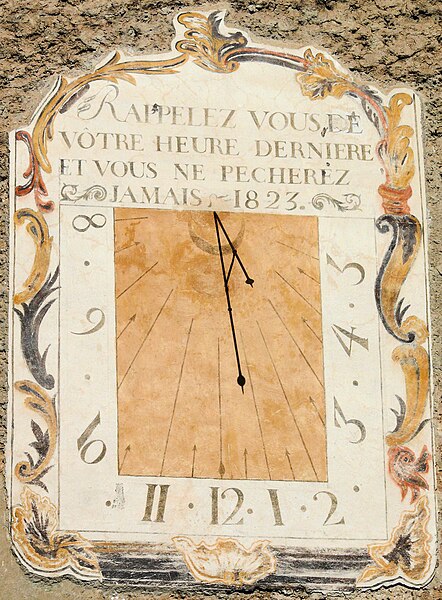 RAPPELEZ VOUS DE
VÔTRE HEURE DERNIERE
ET VOUS NE PECHEREZ
JAMAIS ~ 1823.
8
9
4
3
11 · 12 · 1 · 2